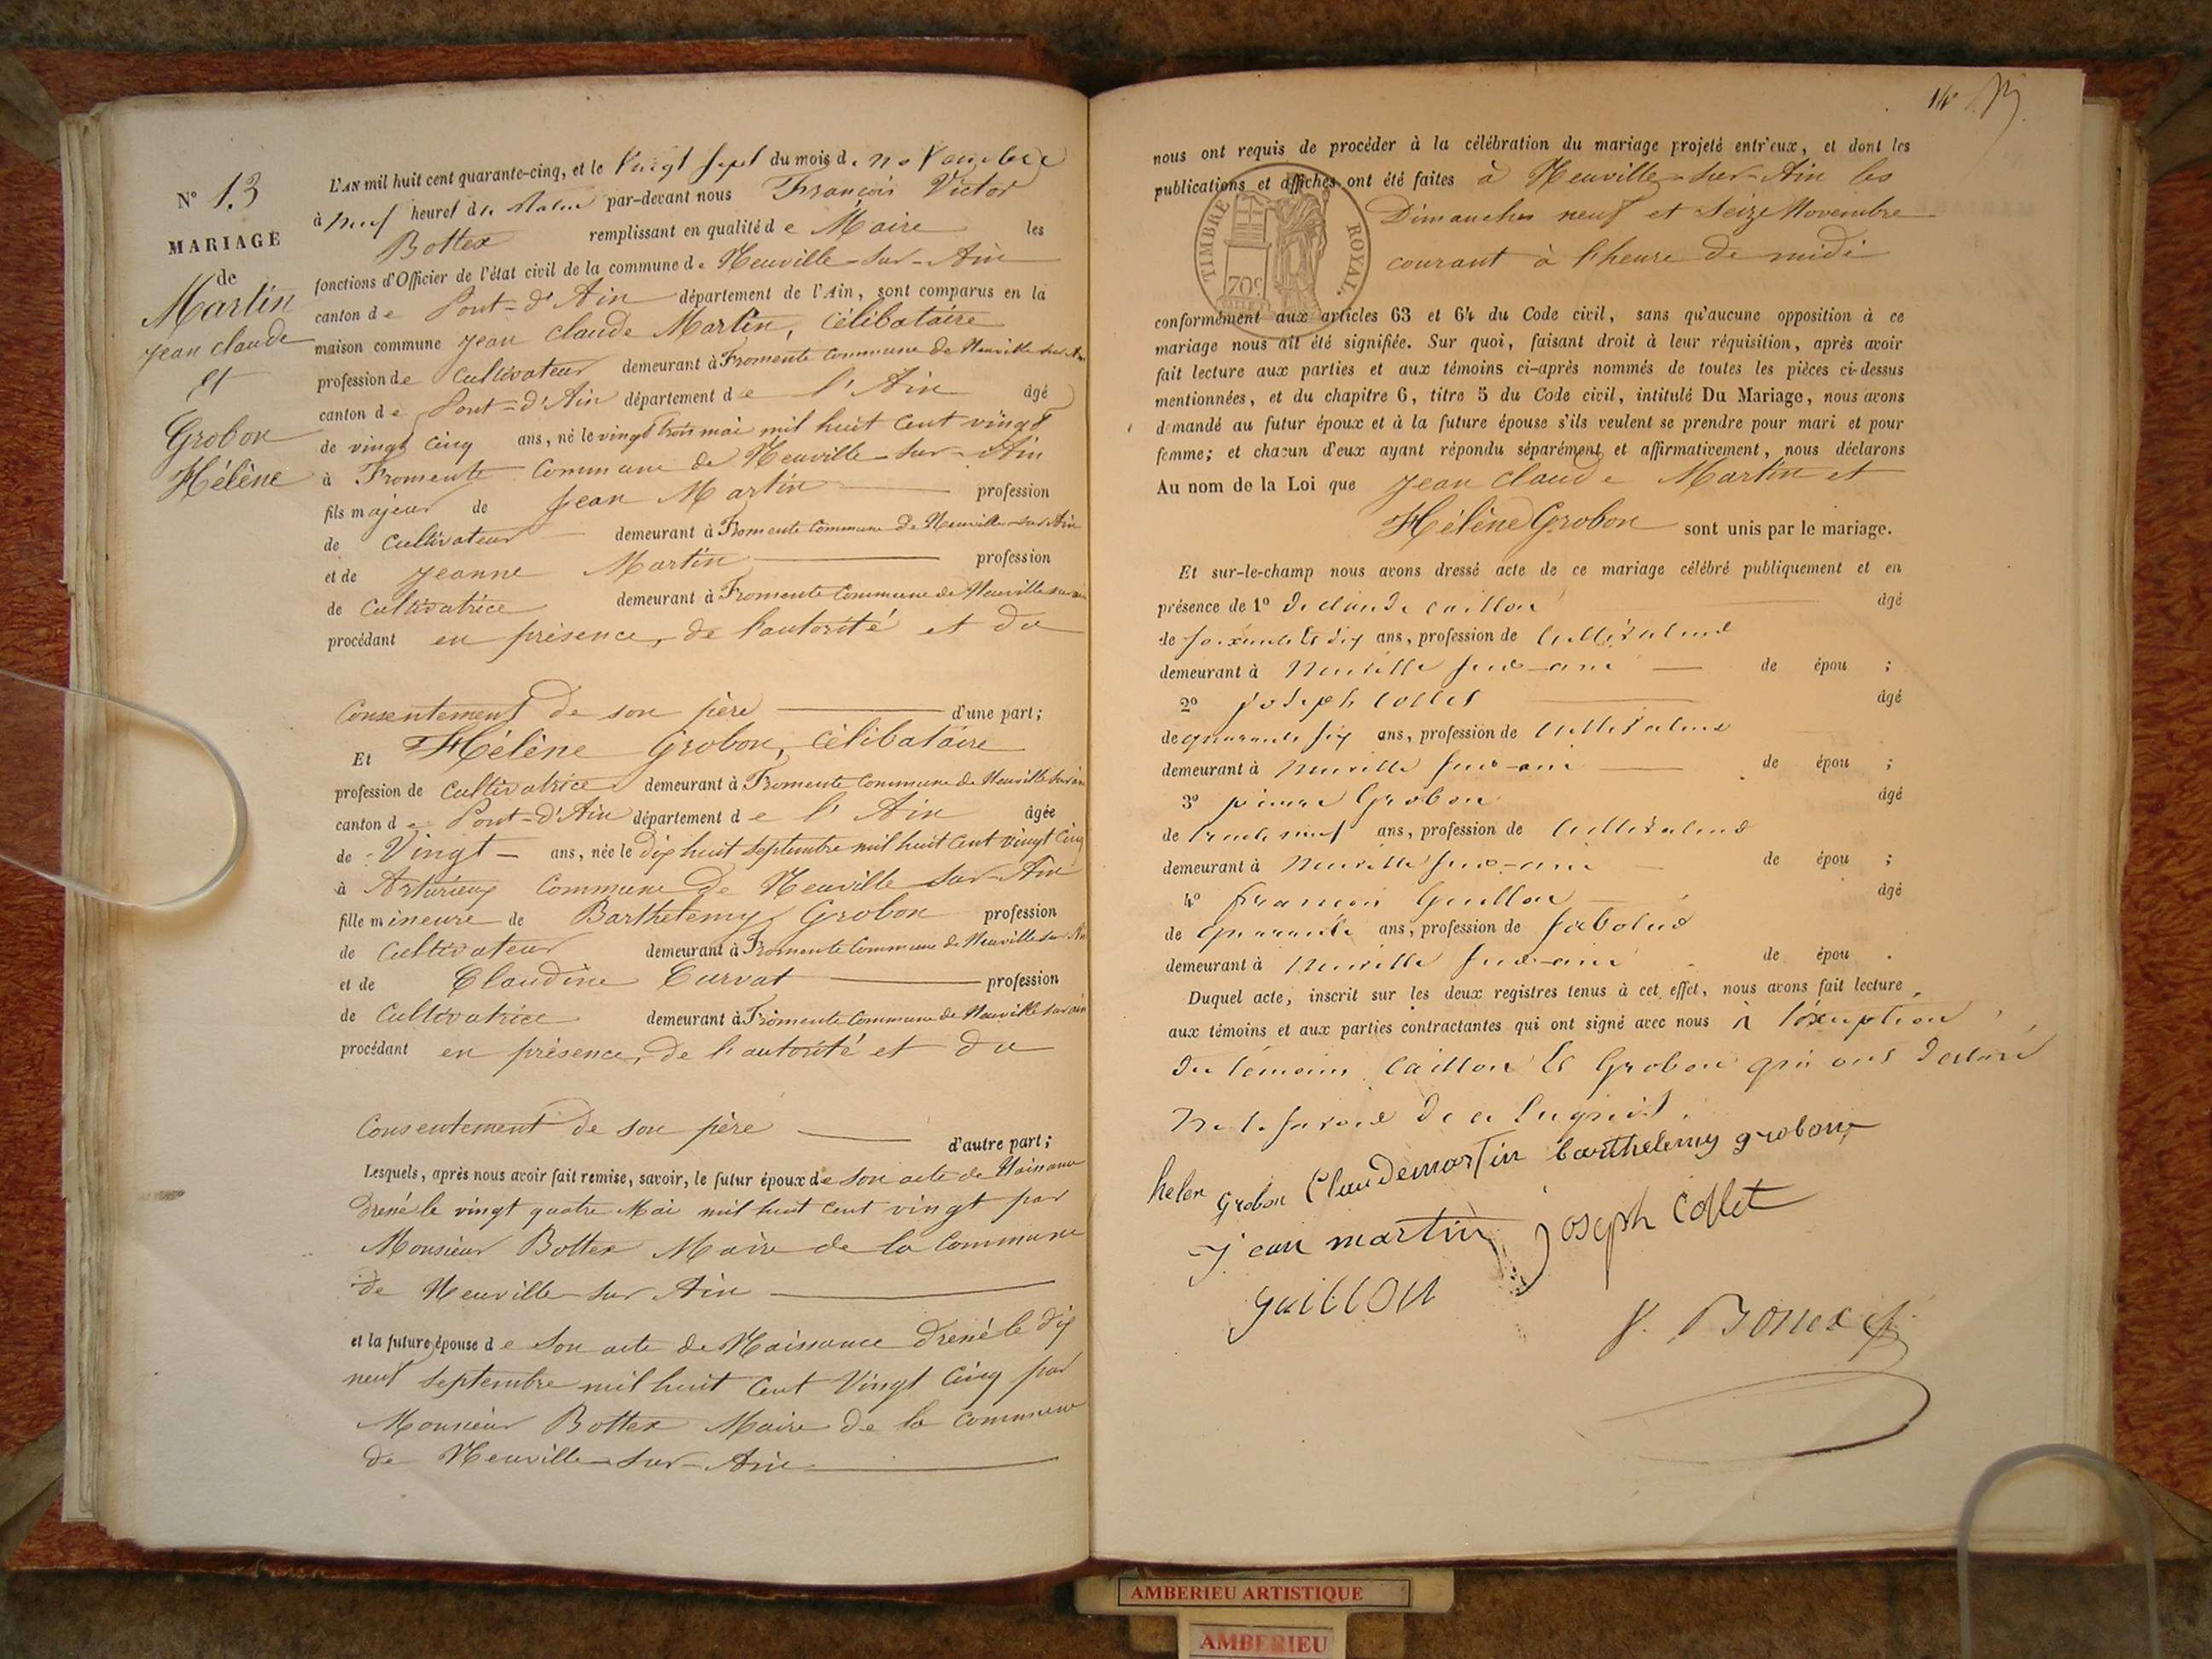 N° 13
MARIAGE
de
Martin
jean claude
et
Grobon
Hélène
L'AN mil huit cent quarante-cinq, et le Vingt sept du mois de novembre
à neuf heures du matin par-devant nous François Victor
Bottex remplissant en qualité de Maire les
fonctions d'Officier de l'état civil de la commune de Neuville-sur-Ain
canton de Pont-d'Ain département de l'Ain, sont comparus en la
maison commune jean claude Martin, célibataire
profession de Cultivateur demeurant à Fromente commune de Neuville sur Ain
canton de Pont-d'Ain département de l'Ain âgé
de vingt cinq ans, né le vingt trois mai mil huit cent vingt
à Fromente Commune de Neuville-sur-Ain
fils majeur de jean Martin profession
de Cultivateur demeurant à Fromente Commune de Neuville-sur Ain
et de jeanne Martin profession
de Cultivatrice demeurant à Fromente Commune de Neuville sur ain
procédant en présence, de l'autorité et du
Consentement de son père d'une part;
Et Hélène Grobon, célibataire
profession de Cultivatrice demeurant à Fromente Commune de Neuville sur ain
canton de Pont-d'Ain département de l'Ain âgée
de Vingt ans, née le dix huit septembre mil huit cent vingt cinq
à Commune de Neuville sur-Ain
fille mineure de Barthelemy Grobon profession
de Cultivateur demeurant à Fromente Commune de Neuville sur Ain
et de Claudine Curvat profession
de Cultivatrice demeurant à Fromente Commune de Neuville sur ain
procédant en présence, de l'autorité et du
Consentement de son père d'autre part;
Lesquels, après nous avoir fait remise, savoir, le futur époux de son acte de Naissance
Dressé le vingt quatre Mai mil huit cent vingt par
Monsieur Bottex Maire de la Commune
de Neuville sur Ain
et la future épouse de Son acte de Naissance Dressé le dix
neuf septembre mil huit Cent Vingt Cinq par
Monsieur Bottex Maire de la Commune
de Neuville-sur-Ain
14
nous ont requis de procéder à la célébration du mariage projeté entr'eux, et dont les
publications et affiches ont été faites à Neuville-sur-Ain les
Dimanches neuf et seize Novembre
courant à l'heure de midi
TIMBRE ROYAL
70c
conformément aux articles 63 et 64 du Code civil, sans qu'aucune opposition à ce
mariage nous ait été signifiée. Sur quoi, faisant droit à leur réquisition, après avoir
fait lecture aux parties et aux témoins ci-après nommés de toutes les pièces ci-dessus
mentionnées, et du chapitre 6, titre 5 du Code civil, intitulé Du Mariage, nous avons
demandé au futur époux et à la future épouse s'ils veulent se prendre pour mari et pour
femme; et chacun d'eux ayant répondu séparément et affirmativement, nous déclarons
Au nom de la Loi que jean claude Martin et
Hélène Grobon sont unis par le mariage.
Et sur-le-champ nous avons dressé acte de ce mariage célébré publiquement et en
présence de 1° de claude caillon âgé
de soixante et dix ans, profession de Cultivateur
demeurant à Neuville sur-ain de épou ;
2° joseph collet âgé
de quarante six ans, profession de Cultivateur
demeurant à neuville sur-ain de épou ;
3° pierre Grobon âgé
de trente neuf ans, profession de Cultivateur
demeurant à neuville sur-ain de épou ;
4° françois Guillon âgé
de quarante ans, profession de sabotier
demeurant à neuville sur-ain de épou .
Duquel acte, inscrit sur les deux registres tenus à cet effet, nous avons fait lecture
aux témoins et aux parties contractantes qui ont signé avec nous à l'exception
des témoins caillon et Grobon qui ont déclaré
ne le savoir de ce enquis.
helen grobon Claudemartin barthelemy grobon
jean martin joseph collet
guillon
V. Bottex
AMBERIEU ARTISTIQUE
AMBERIEU